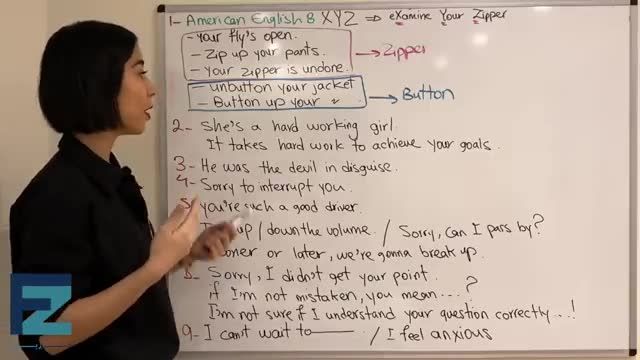 1- American English 8 XYZ ⇒ eXamine Your Zipper
- your fly's open.
- Zip up your pants.
- Your zipper is undone.
→ Zipper
- unbutton your jacket
- Button up your 〃
→ Button
2- She's a hard working girl.
It takes hard work to achieve your goals.
3- He was the devil in disguise.
4- Sorry to interrupt you.
5- you're such a good driver.
up / down the volume. / Sorry, can I pass by?
or later, we're gonna break up.
8- Sorry, I didn't get your point.
if I'm not mistaken, you mean....?
I'm not sure if I understand your question correctly...!
9- I can't wait to——— / I feel anxious
EZ